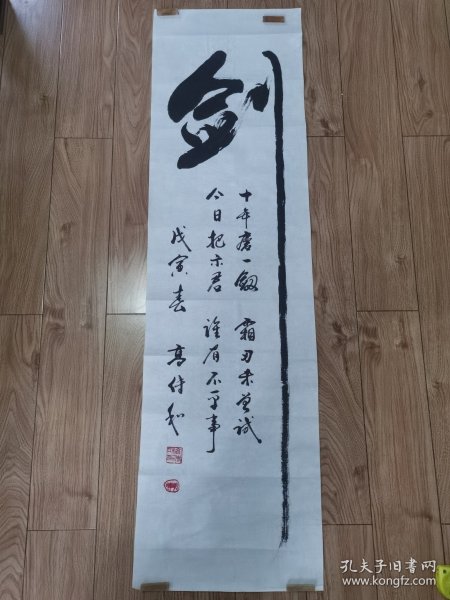 剑
十年磨一剑 霜刃未曾试
今日把示君 谁有不平事
戊寅春 高付
孔夫子旧书网
www.kongfz.com